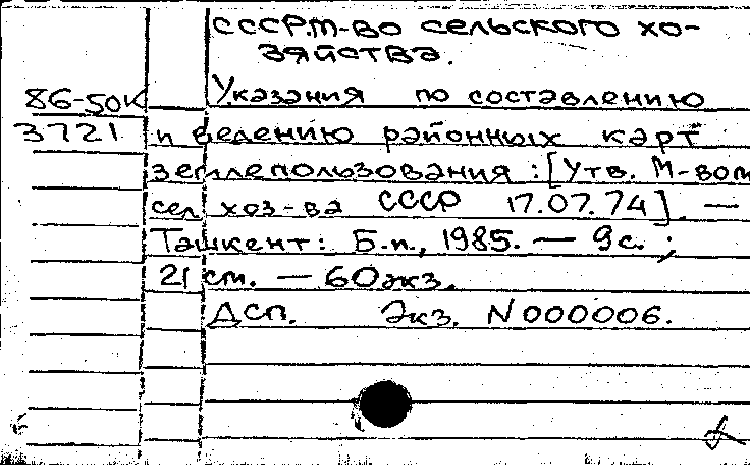 СССР. М-во сельского хо-
зяйства.
86-50к Указания по составлению
3721 и ведению районных карт
землепользования : [Утв. М-вом
сел хоз-ва СССР 17.07.74]. —
Ташкент: Б.и., 1985. — 9 с. ;
21 см. — 60 экз.
ДСП. Экз. N 000006.